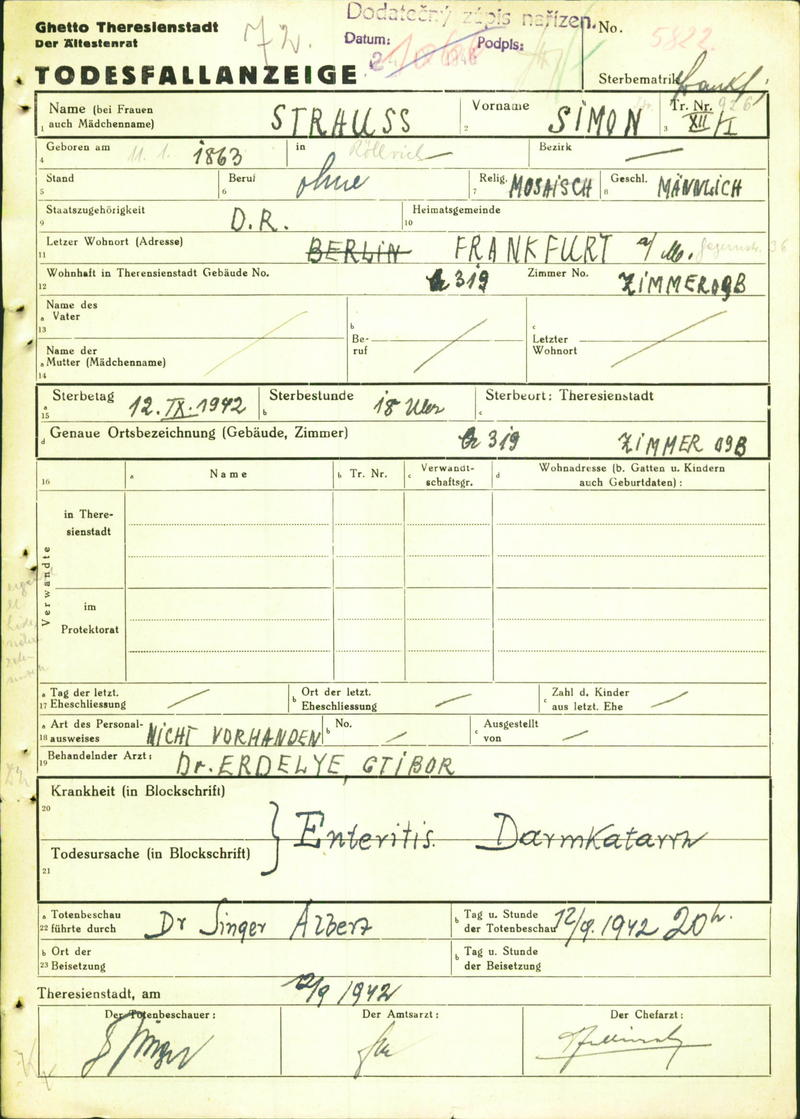 Ghetto Theresienstadt
Der Ältestenrat
72.
Dodatečný zápis nařízen.
Datum:
Podpis:
No.
5822.
TODESFALLANZEIGE
Sterbematrik
Name (bei Frauen auch Mädchenname) STRAUSS Vorname SIMON Tr. Nr. 926 XII/I
1 2 3
Geboren am 11. 1. 1863 in Bezirk —
4
Stand Beruf ohne Relig. MOSAISCH Geschl. MÄNNLICH
5 6 7 8
Staatszugehörigkeit D.R. Heimatsgemeinde
9 10
Letzer Wohnort (Adresse) BERLIN FRANKFURT a/M. 36
11
Wohnhaft in Therensienstadt Gebäude No. 319 Zimmer No. ZIMMER 09B
12
Name des
a Vater
13
b Be-
ruf
c Letzter
Wohnort
Name der
a Mutter (Mädchenname)
14
Sterbetag 12. IX. 1942 Sterbestunde 18 Uhr Sterbeort: Theresienstadt
a 15 b c
d Genaue Ortsbezeichnung (Gebäude, Zimmer) 319 ZIMMER 09B
16 a Name b Tr. Nr. c Verwandt-
schaftsgr. d Wohnadresse (b. Gatten u. Kindern
auch Geburtdaten) :
Verwandte
in There-
sienstadt
im
Protektorat
a Tag der letzt.
17 Eheschliessung —
b Ort der letzt.
Eheschliessung —
c Zahl d. Kinder
aus letzt. Ehe —
a Art des Personal-
18 ausweises NICHT VORHANDEN
b No. —
c Ausgestellt
von —
19 Behandelnder Arzt: Dr. ERDELYE, CTIBOR
Krankheit (in Blockschrift)
20
} Enteritis. Darmkatarrh
Todesursache (in Blockschrift)
21
a Totenbeschau
22 führte durch Dr Singer Albert
b Tag u. Stunde
der Totenbeschau 12/9. 1942 20 h.
b Ort der
23 Beisetzung
b Tag u. Stunde
der Beisetzung
Theresienstadt, am 12/9 1942
Der Totenbeschauer: Der Amtsarzt: Der Chefarzt: